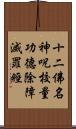 十二佛名
神呪校量
功德除障
滅羅經